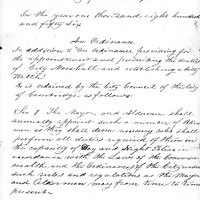 In the year one thousand eight hundred
and fifty six
An Ordinance
In addition to "An Ordinance, providing for
the appointment and prescribing the duties
of City Marshall and establishing a City
Watch
It is ordained by the City Council of the City
of Cambridge as follows:
Sec 1 The Mayor and Aldermen shall
annually appoint such a number of
men as they shall deem necessary who shall
perform all duties required of them in
the capacity of Day and Night Police in
accordance with the Laws of the Common
wealth and the Ordinances of the City and
such rules and regulations as the Mayor
and Aldermen may from time to time
prescribe